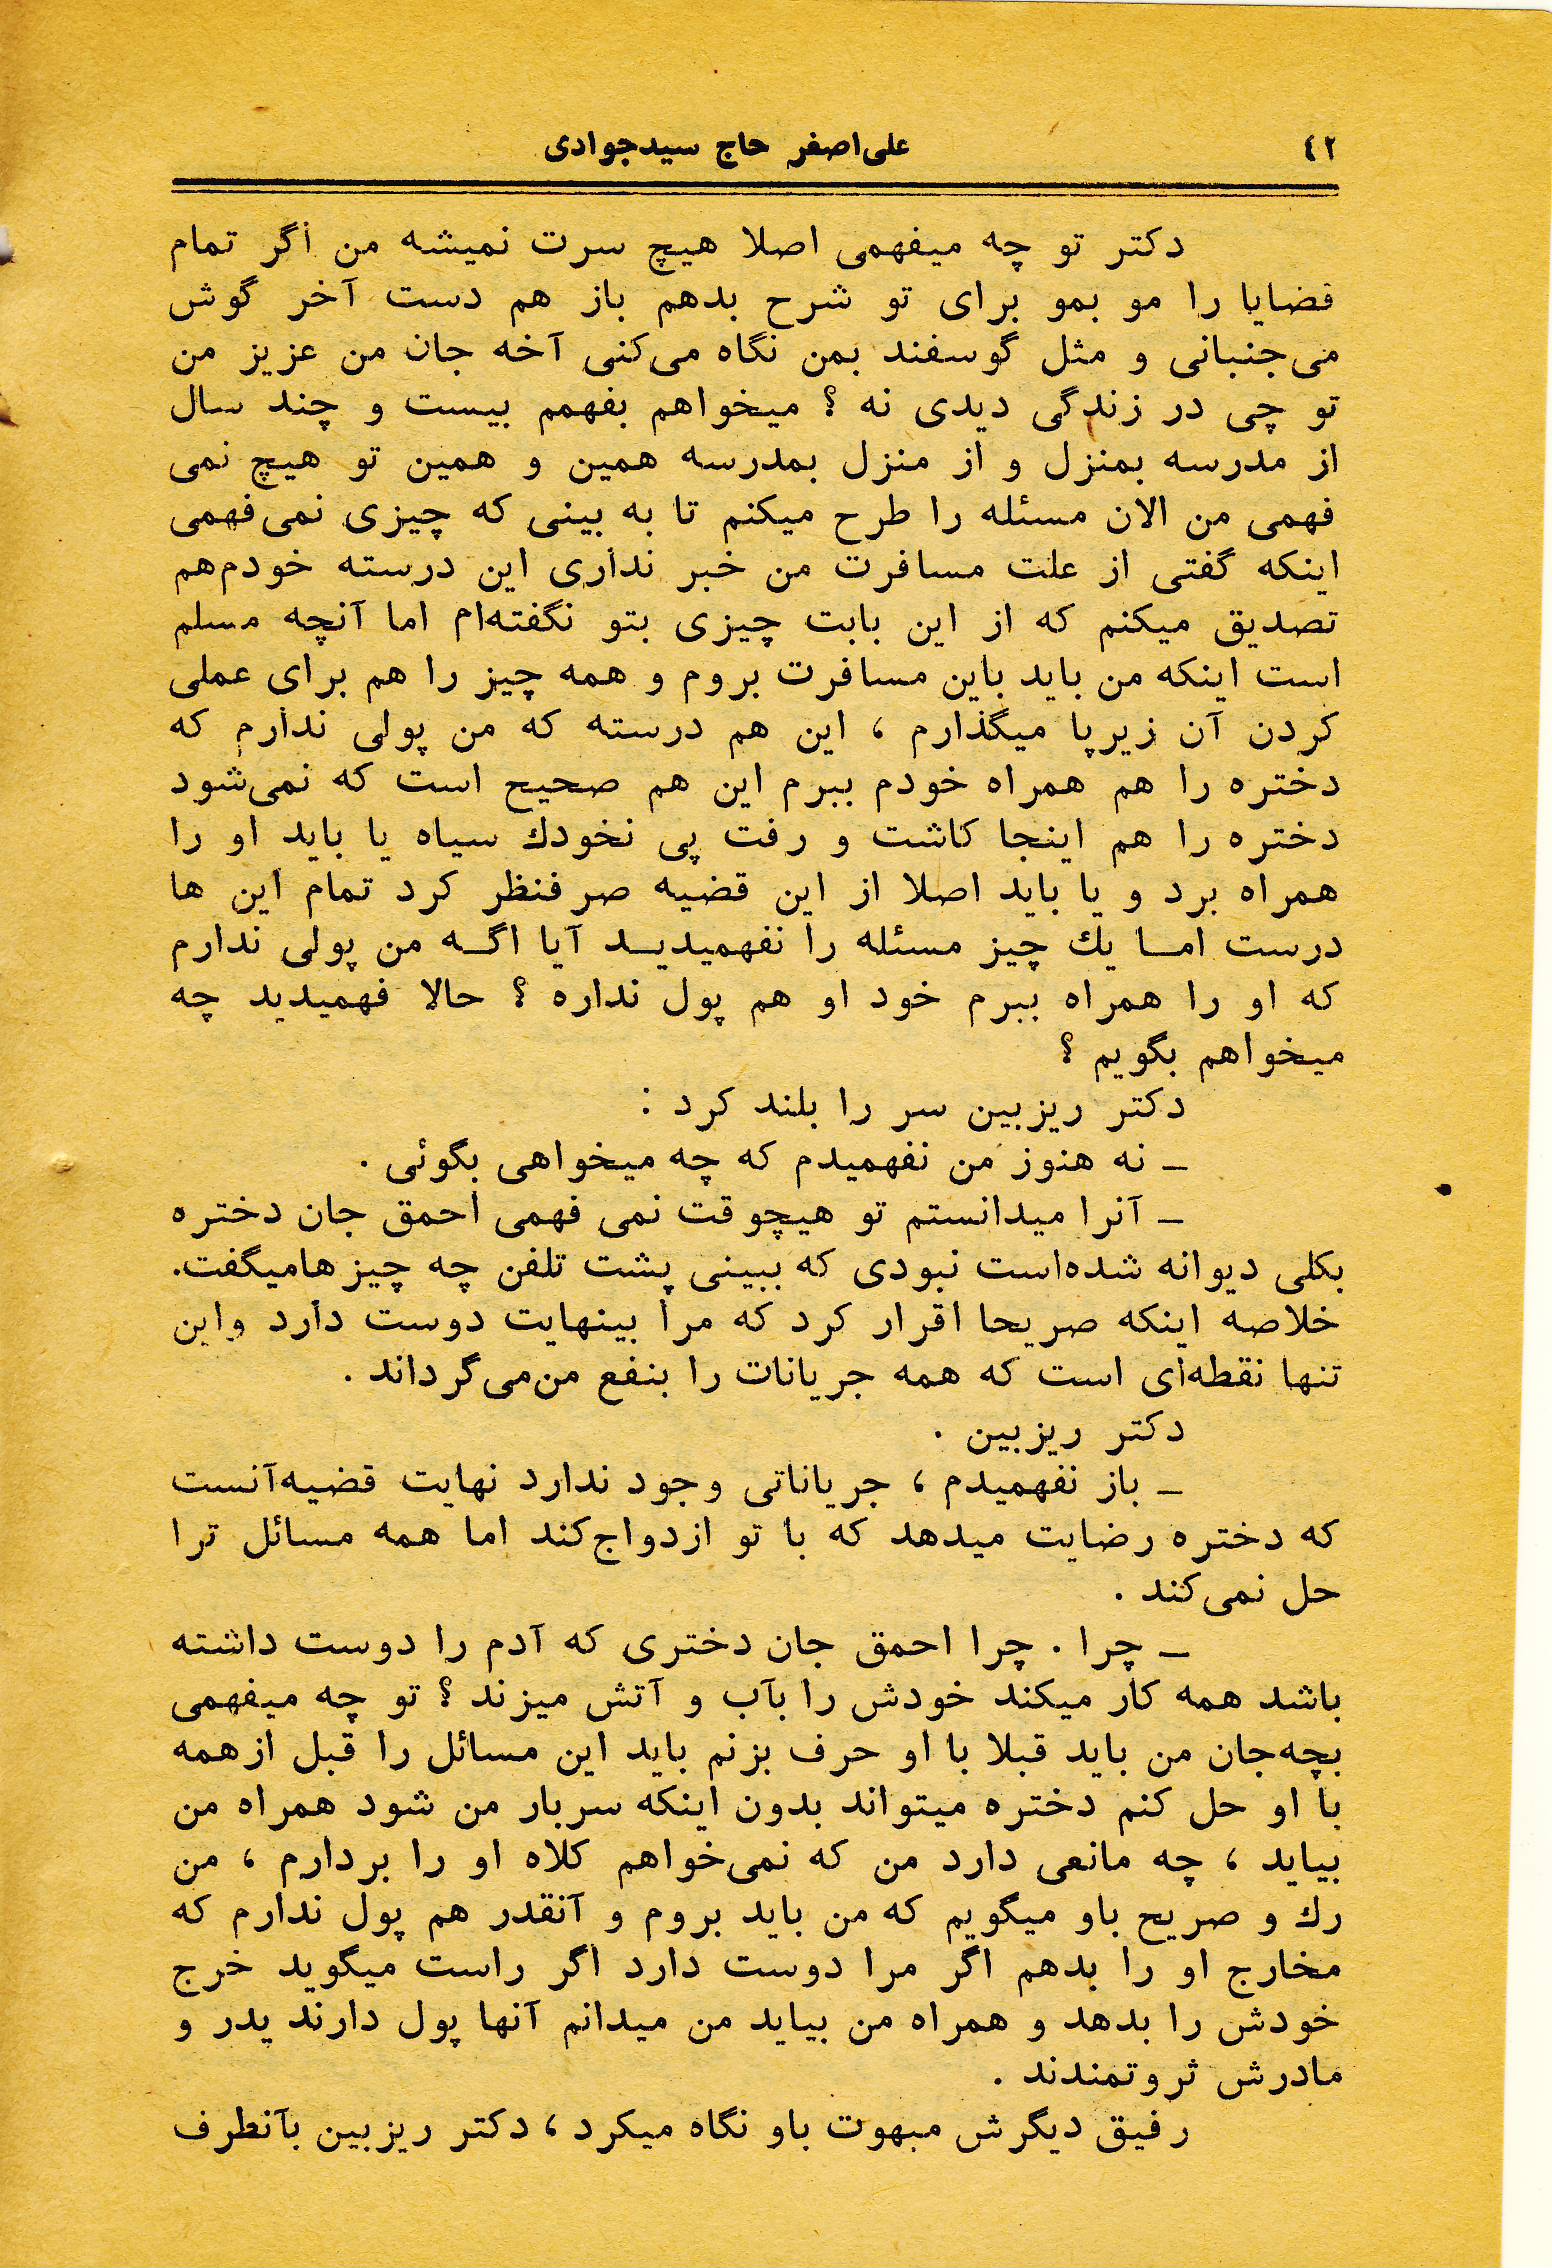 ٤٢
علی‌اصغر حاج سیدجوادی
دکتر تو چه میفهمی اصلا هیچ سرت نمیشه من اگر تمام
قضایا را مو بمو برای تو شرح بدهم باز هم دست آخر گوش
می‌جنبانی و مثل گوسفند بمن نگاه می‌کنی آخه جان من عزیز من
تو چی در زندگی دیدی نه ؟ میخواهم بفهمم بیست و چند سال
از مدرسه بمنزل و از منزل بمدرسه همین و همین تو هیچ نمی
فهمی من الان مسئله را طرح میکنم تا به بینی که چیزی نمی‌فهمی
اینکه گفتی از علت مسافرت من خبر نداری این درسته خودم‌هم
تصدیق میکنم که از این بابت چیزی بتو نگفته‌ام اما آنچه مسلم
است اینکه من باید باین مسافرت بروم و همه چیز را هم برای عملی
کردن آن زیرپا میگذارم ، این هم درسته که من پولی ندارم که
دختره را هم همراه خودم ببرم این هم صحیح است که نمی‌شود
دختره را هم اینجا کاشت و رفت پی نخودك سیاه یا باید او را
همراه برد و یا باید اصلا از این قضیه صرفنظر کرد تمام این ها
درست امـا یك چیز مسئله را نفهمیدیـد آیا اگـه من پولی ندارم
که او را همراه ببرم خود او هم پول نداره ؟ حالا فهمیدید چه
میخواهم بگویم ؟
دکتر ریزبین سر را بلند کرد :
ـ نه هنوز من نفهمیدم که چه میخواهی بگوئی .
ـ آنرا میدانستم تو هیچوقت نمی فهمی احمق جان دختره
بکلی دیوانه شده‌است نبودی که ببینی پشت تلفن چه چیزهامیگفت.
خلاصه اینکه صریحا اقرار کرد که مرا بینهایت دوست دارد واین
تنها نقطه‌ای است که همه جریانات را بنفع من‌می‌گرداند .
دکتر ریزبین .
ـ باز نفهمیدم ، جریاناتی وجود ندارد نهایت قضیه‌آنست
که دختره رضایت میدهد که با تو ازدواج‌کند اما همه مسائل ترا
حل نمی‌کند .
ـ چرا . چرا احمق جان دختری که آدم را دوست داشته
باشد همه کار میکند خودش را بآب و آتش میزند ؟ تو چه میفهمی
بچه‌جان من باید قبلا با او حرف بزنم باید این مسائل را قبل ازهمه
با او حل کنم دختره میتواند بدون اینکه سربار من شود همراه من
بیاید ، چه مانعی دارد من که نمی‌خواهم کلاه او را بردارم ، من
رك و صریح باو میگویم که من باید بروم و آنقدر هم پول ندارم که
مخارج او را بدهم اگر مرا دوست دارد اگر راست میگوید خرج
خودش را بدهد و همراه من بیاید من میدانم آنها پول دارند پدر و
مادرش ثروتمندند .
رفیق دیگرش مبهوت باو نگاه میکرد ، دکتر ریزبین بآنطرف